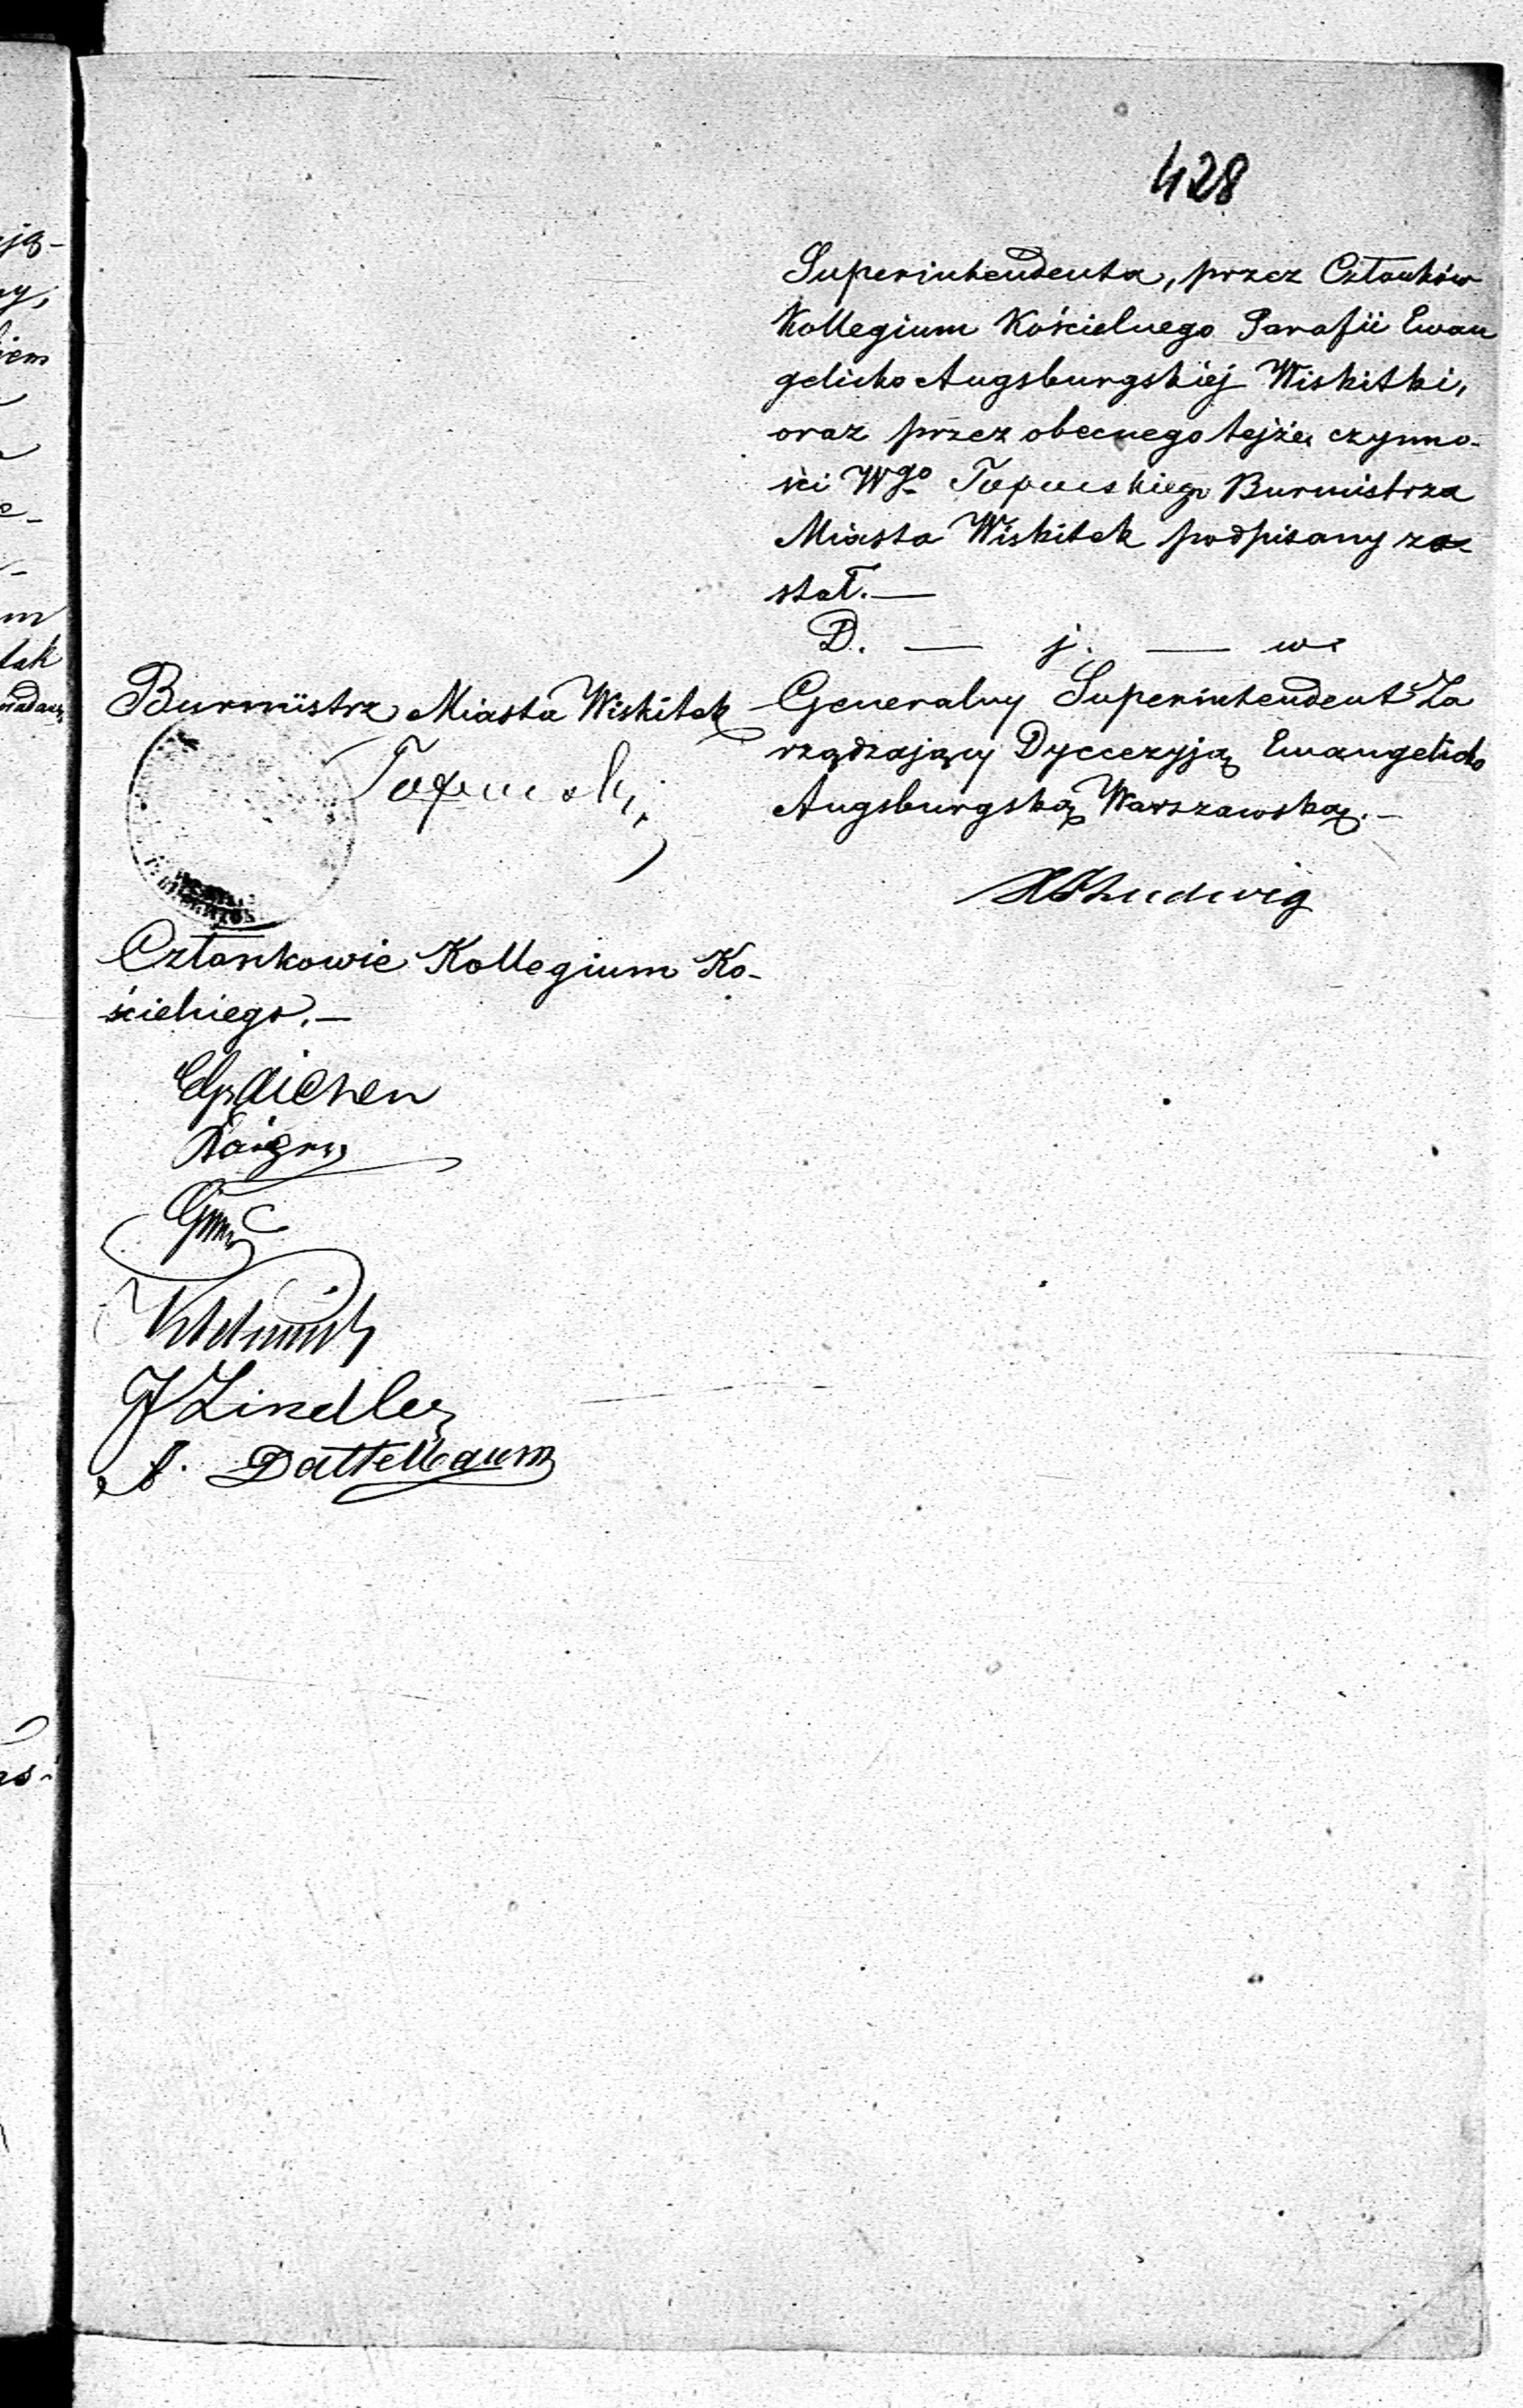 428
Superintendenta, przez Członków
Kollegium Kościelnego Parafii Ewan
gelicko Augsburgskiéj Wiskitki,
oraz przez obecnego tejże czynno-
ści Wgo Burmistrza
Miasta Wiskitek podpisany zo-
stał.—
D. — j. — w.
Generalny Superintendent Za
rządzający Dyecezyją Ewangelicko
Augsburgską Warszawską.—
Ludwig
Burmistrz Miasta Wiskitek
Członkowie Kollegium Ko-
ścielnego.—
J Lindler
A. Dattelbaum